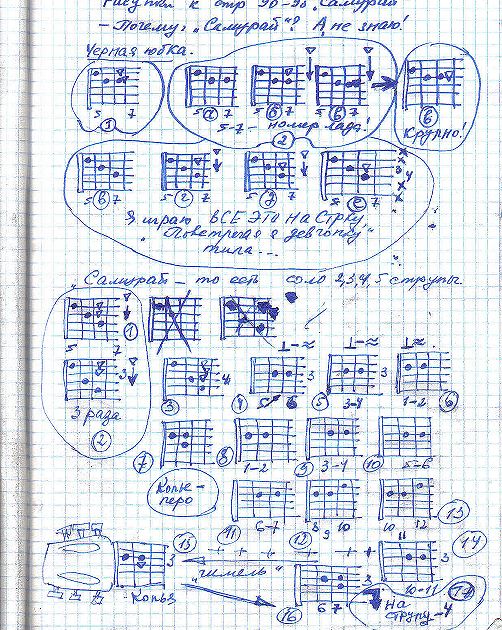 Рисунки к стр 90-98 „Самурай"
- Почему „Самурай"? А не знаю!
Черная юбка.
5 7
5 7 5 7 5 7
1
а б в
5-7 - номер лада!
2
б
Крупно!
5 7 5 7 5 7 5 7
в г д е
3 4
Я играю ВСЕ ЭТО НА Строку
„Повстречал я девчонку"
типа...
„Самурай - то есть соло 2,3,4,5 струны
5 7 1
3
3 раза
2
3 4
4 5 6
5 3-4 3
1-2 6
7
8 1-2
9 3-4
10 5-6
Копье-
перо
11 6-7
12 8 9 10
10 11 12 13
15
„Чтмель"
Копьз
3
10-11 14
16 6-7 3
17
на
струну-4